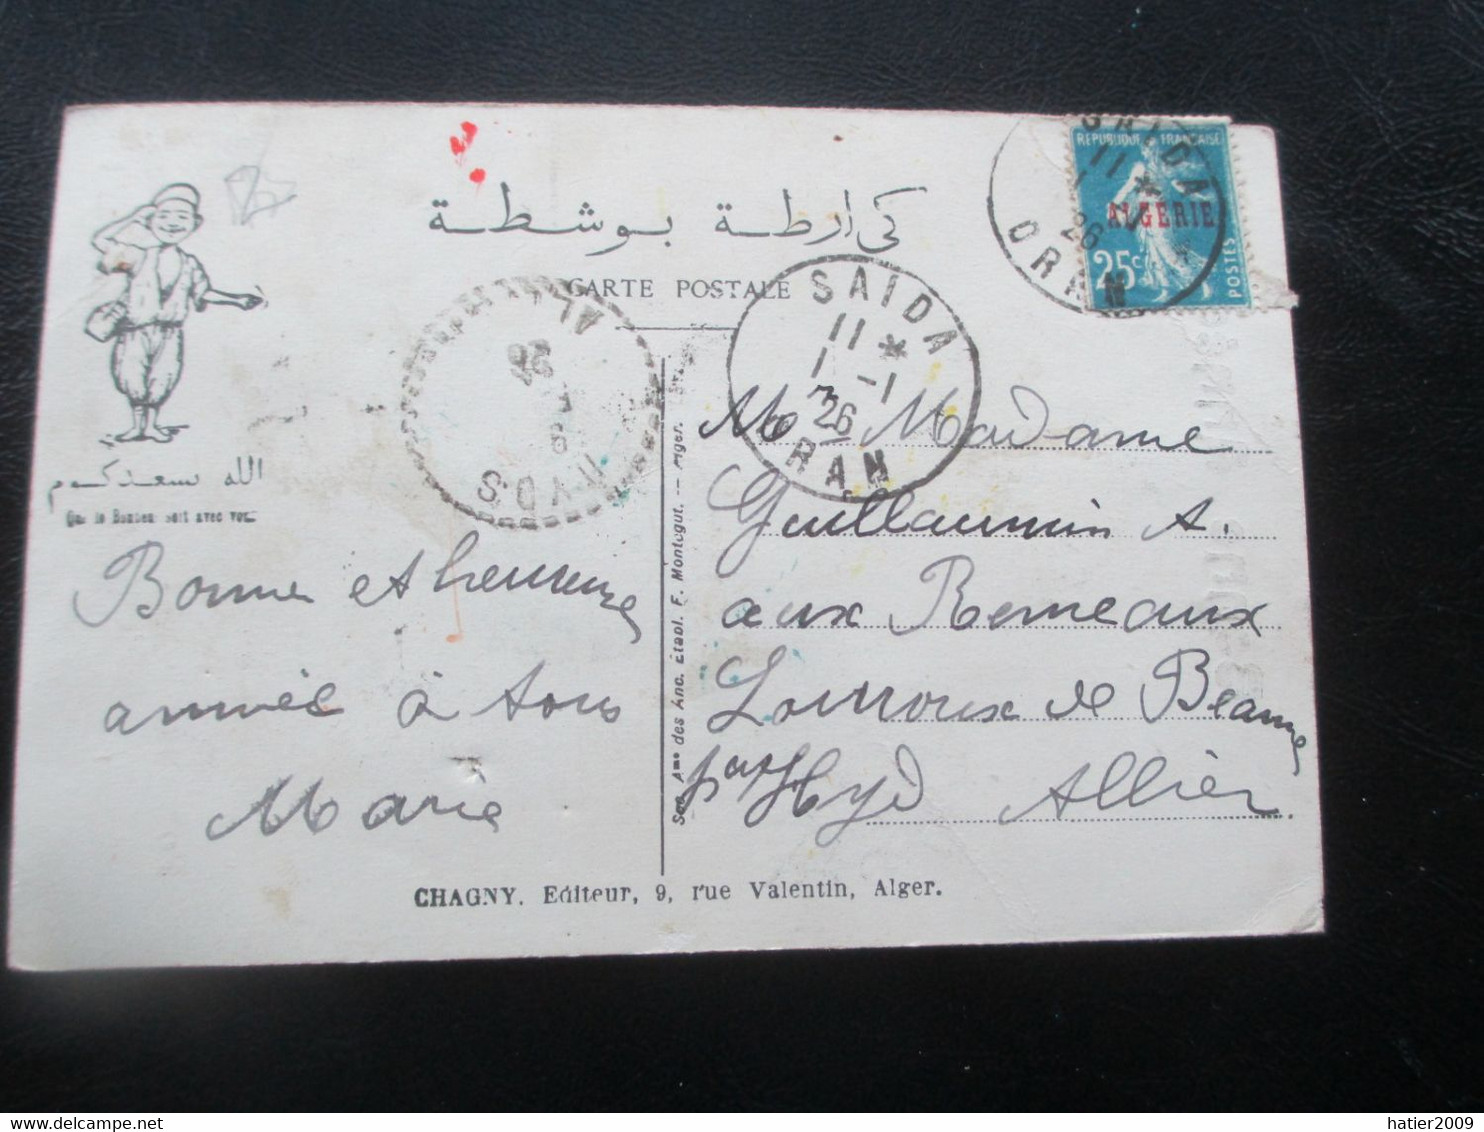 كارطة بوشطة
CARTE POSTALE
REPUBLIQUE FRANÇAISE
ALGERIE
25c
POSTES
SAIDA
ORAN
26
SAIDA
11 *
1 -1
26
ORAN
26
الله يسعدكم
Que le Bonheur soit avec vous
Bonne et heureuse
année à tous
Marie
Mr Madame
Guillaumin A.
aux Remeaux
Louroux de Beaune
par Hyd Allier
Soc. Ame des Anc. Etabl. F. Montégut. — Alger.
CHAGNY. Editeur, 9, rue Valentin, Alger.
hatier2009